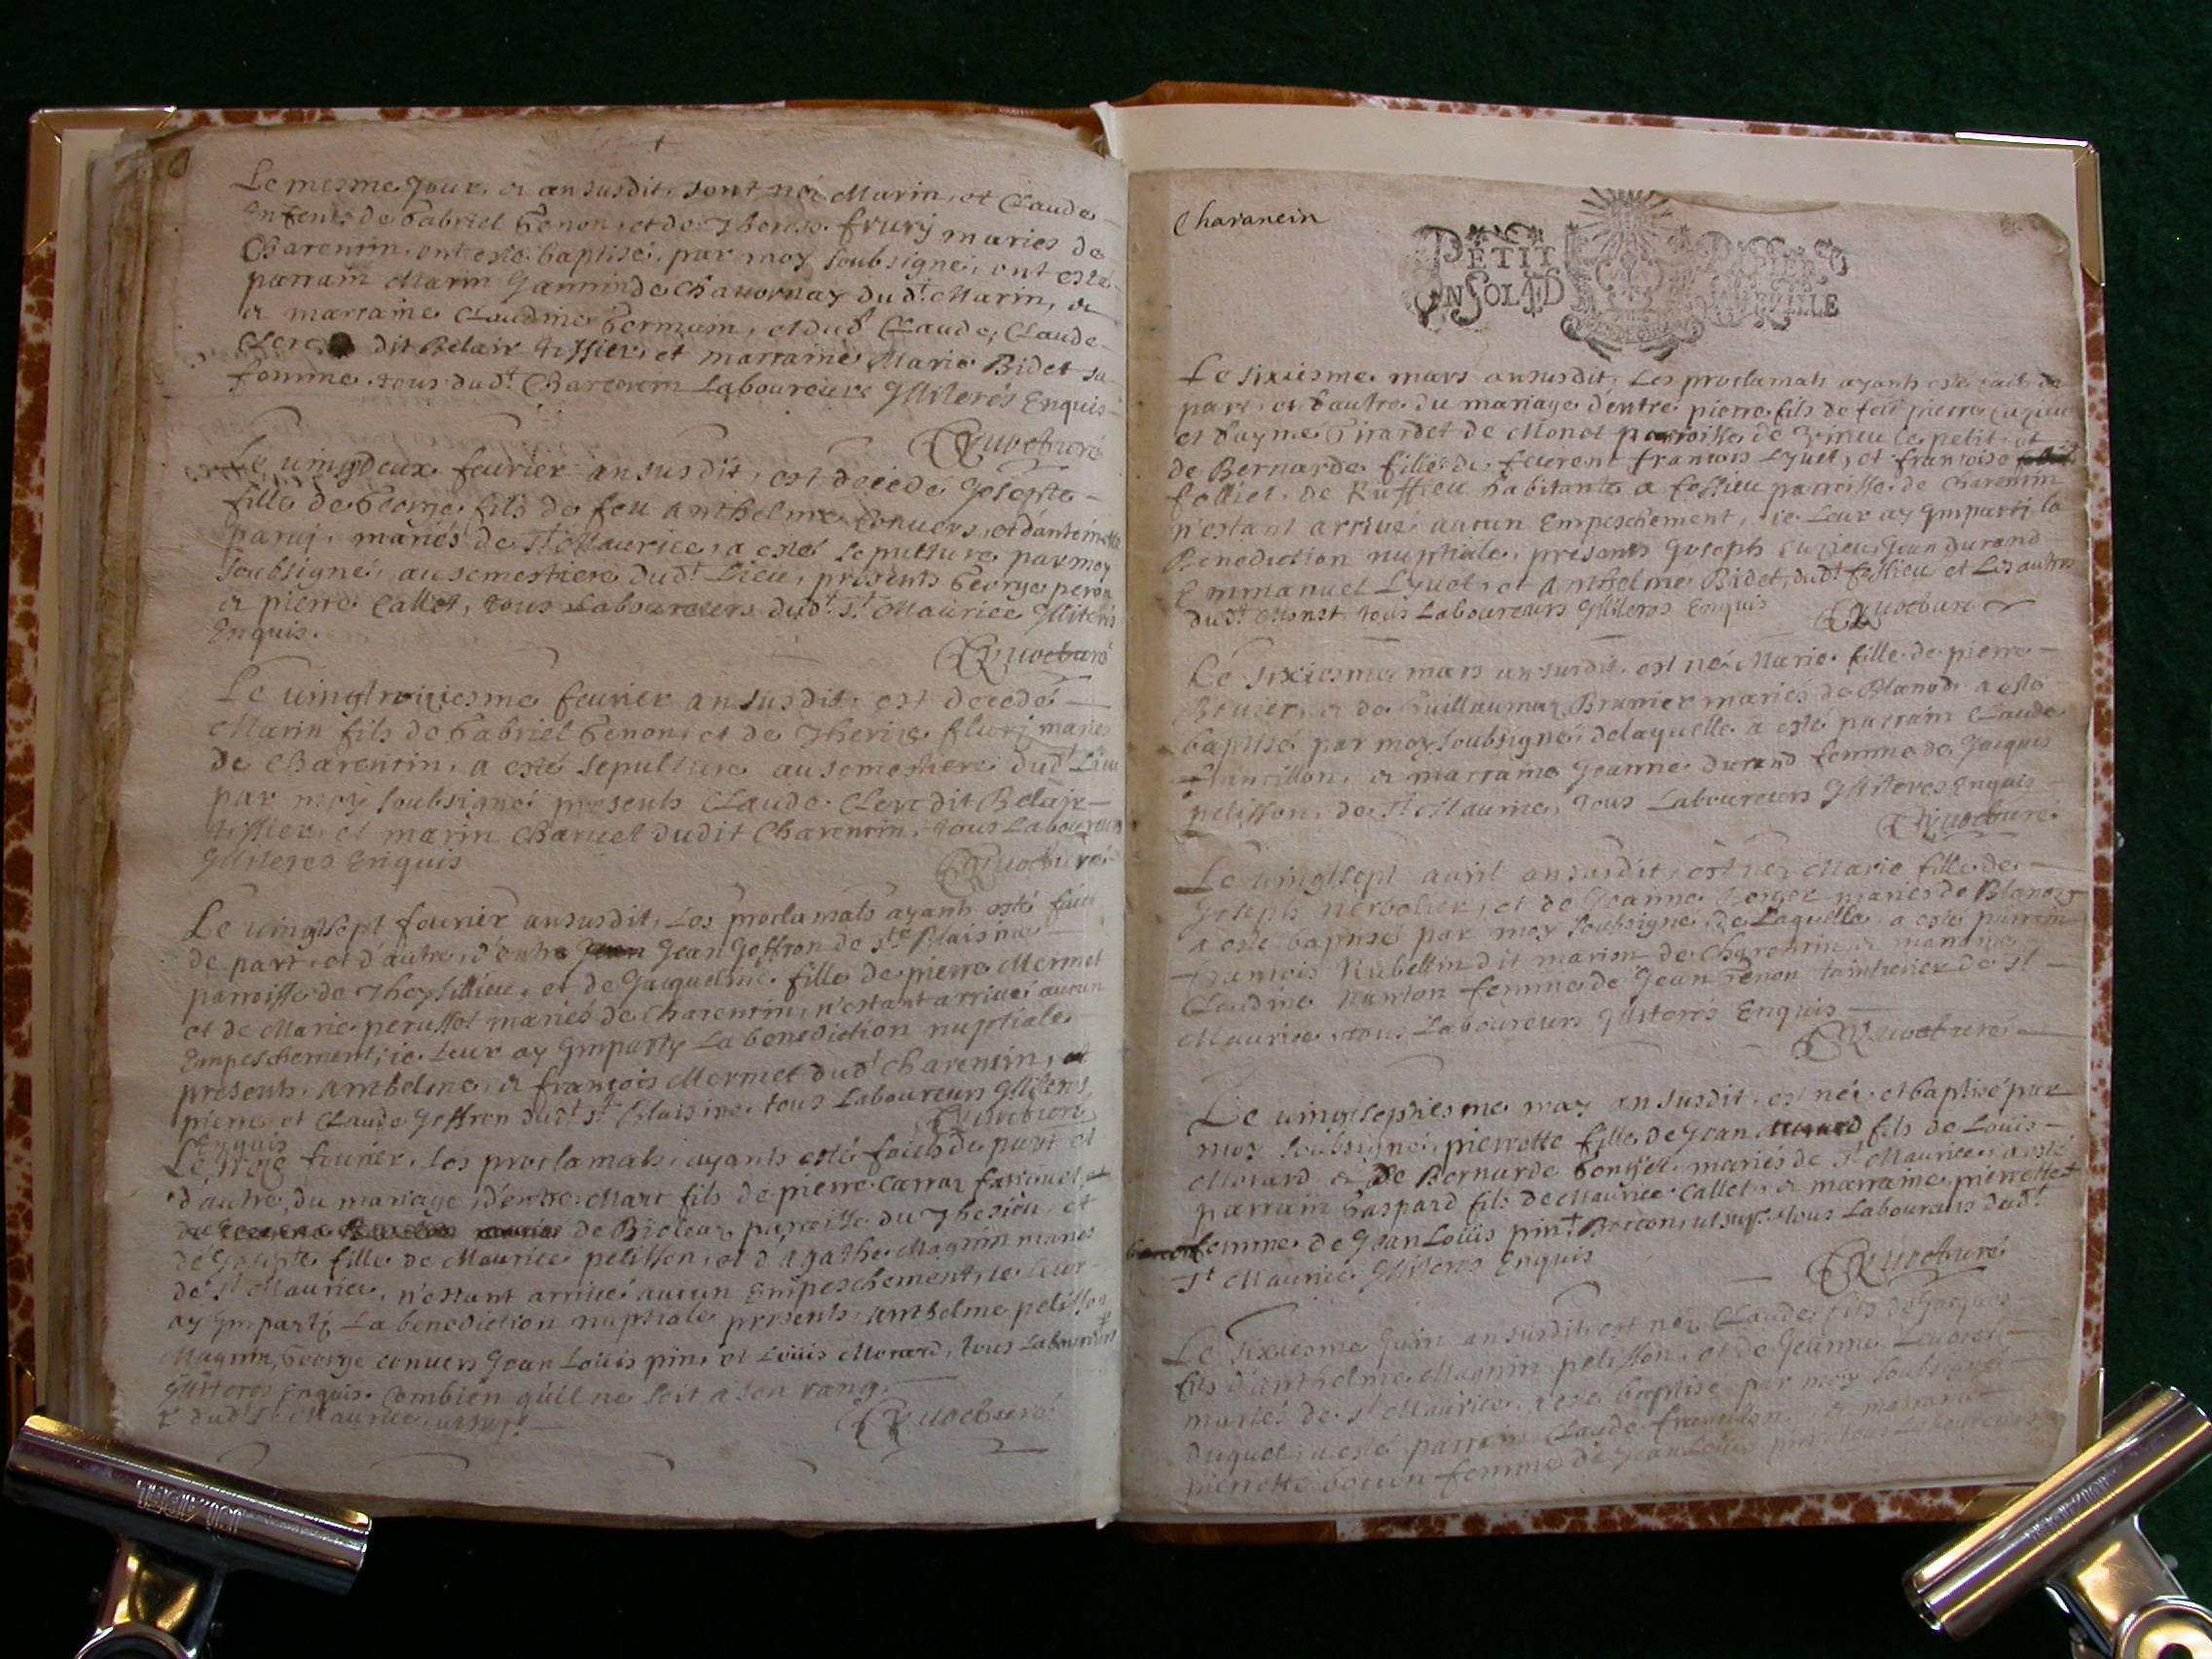 Le mesme jour, et an susdit, sont né Marin, et Claude
enfents de Gabriel Genon, et de Therise flurÿ mariés de
Charentin, ont esté baptisé, par moy soubsigné, ont esté
parrain Marin Jannin de Chavornay dudt Marin, et
et marraine Claudine Germain, et dudt Claude, Claude
Clerc dit Belair tissier, et marraine Marie Bidet sa
femme tous dudt Charentin Laboureurs Illiterés Enquis
Le vingtdeux feuvrier an susdit, est decedé Josepte
fille de George fils de feu anthelme Convers, et d'antoinette
mariés de St Maurice, a esté sepulture par moy
soubsigné, au semestiere dudt Lieu, presents George peron
et pierre Callet, tous Laboureurs dudt St Maurice Illiterés
Enquis.
Le vingtroiziesme feuvrier an susdit, est decedé
Marin fils de Gabriel Genon, et de Therise flurj mariés
de Charentin, a esté sepulture au semestiere dudt Lieu
par moy soubsigné presents Claude Clerc dit Belair
tissier, et marin Charvet dudit Charentin, tous Laboureurs
Illiteres Enquis
Le vingtsept feuvrier an susdit, Les proclamats ayants esté faict
de part, et d'autre, d'entre Jean Goffron de St Blaisine
parroisse de Theysillieu, et de Jacqueline fille de pierre Mermet
et de Marie perussel mariés de Charentin, n'estant arrivé aucun
Empeschement, ie Leur ay Imparty La benediction nuptiale
presents, Anthelme, et françois Mermet dudt Charentin, et
pierre, et Claude Goffron dudt St Blaisine tous Laboureurs Illiterés
Enquis
Le feuvrier, Les proclamats ayants esté faicts de part et
d'autre, du mariage, d'entre Marc fils de pierre Carraz
de paroisse du et
de Josepte fille de Maurice pelisson, et d'agathe Magnin mariés
de St Maurice, n'estant arrivé aucun Empeschement, ie Leur
ay Imparti La benediction nuptiale presents, Anthelme pelisson
Magnin, George convers Jean Loüis pin, et Loüis Morard, tous Laboureurs
Illiterés Enquis. Combien qu'il ne soit a son rang.
dudt St Maurice, ut supr.
Charancin
PETIT PAPIER
UN SOL LA
Le sixiesme mars an susdit, Les proclamats ayants esté faits de
part, et d'autre du mariage d'entre pierre fils de feu pierre Cuzieu
et d'aymé Girardet de Monot parroisse de Virieu le petit, et
de Bernarde fille de françois Lyuet, et françoise
folliet, de Ruffieu habitante a fossieu parroisse de Charentin
n'estant arrivé aucun Empeschement, ie Leur ay Imparti la
Benediction nuptiale, presents Joseph Cuzieu, Jean durand
Emmanuel Lyuet, et Anthelme Bidet, dudt fossieu et Les autres
dudt Monet tous Laboureurs Illiteres Enquis
Le sixiesme mars an susdit, est né Marie fille de pierre
Bouier, et de Guillaumaz Brunier mariés de Blanod a esté
baptisé par moy soubsigné, de laquelle a esté parrain Claude
francillon, et marraine Jeanne durand femme de Jacques
pelisson, de St Maurice, tous Laboureurs Illiteres Enquis
Le vingtsept auril an susdit, est nez Marie fille de
Joseph nerbolier, et de Jeanne Berger mariés de Blanoz
a esté baptisé par moy soubsigné, de Laquelle a esté parrain
François Rubellin dit marion de Charentin, et marraine
Claudine nanton femme de Jean Genon tainturier de St
Maurice, tous Laboureurs Illiterés Enquis
Le vingtseptiesme may an susdit est né et baptisé par
moy soubsigné, pierrette fille de Jean fils de Loüis
Morard et De Bernarde Gonyet mariés de St Maurice, a esté
parrain Gaspard fils de Maurice Callet, et marraine pierrette
femme de Jean Loüis pin Boccon, ut supr. tous Laboureurs dudt
St Maurice Illiteres Enquis
Le sixiesme Juin an susdit est nez Claude fils de Jacques
fils d'anthelme Magnin pelisson, et de Jeanne
mariés de St Maurice, a esté baptisé par moy soubsigné
duquel a esté parrain Claude francillon, et marraine
pierrette boccon femme de Jean Loüis pin tous Laboureurs